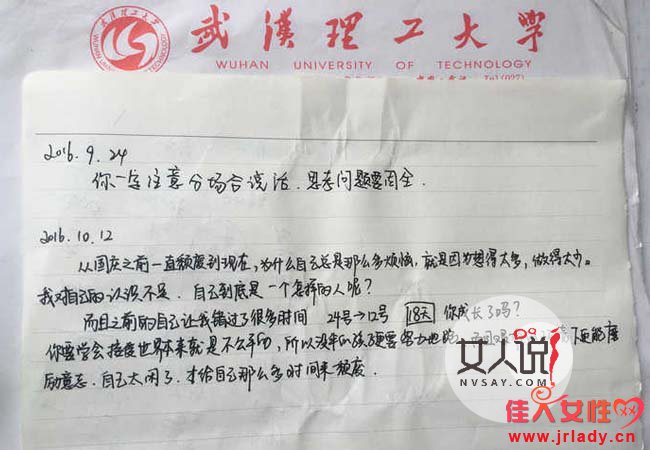 武汉理工大学
WUHAN UNIVERSITY OF TECHNOLOGY
Tel(027)
2016.9.24
你一定注意分场合说话.思考问题要周全.
2016.10.12
从国庆之前一直颓废到现在,为什么自己总是那么多烦恼,就是因为想得太多,做得太少。
我对自己的认识不足.自己到底是一个怎样的人呢?
而且之前的自己让我错过了很多时间 24号→12号 18天 你成长了吗?
你要学会接受世界本来就是不公平的,所以没伞的孩子更要努力地跑.
励意志.自己太闲了.才给自己那么多时间来颓废.
女人说!
NVSAY.COM
佳人女性网
www.jrlady.cn